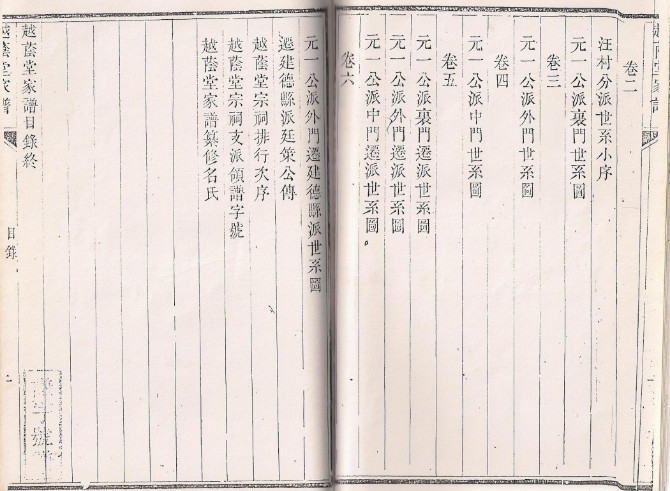 越蔭堂家譜
卷二
汪村分派世系小序
元一公派裏門世系圖
卷三
元一公派外門世系圖
卷四
元一公派中門世系圖
卷五
元一公派裏門遷派世系圖
元一公派外門遷派世系圖
元一公派中門遷派世系圖
卷六
元一公派外門遷建德縣派世系圖
遷建德縣派廷策公傳
越蔭堂宗祠排行次序
越蔭堂宗祠支派領譜字號
越蔭堂家譜纂修名氏
越蔭堂家譜目錄終
越蔭堂家譜
目錄